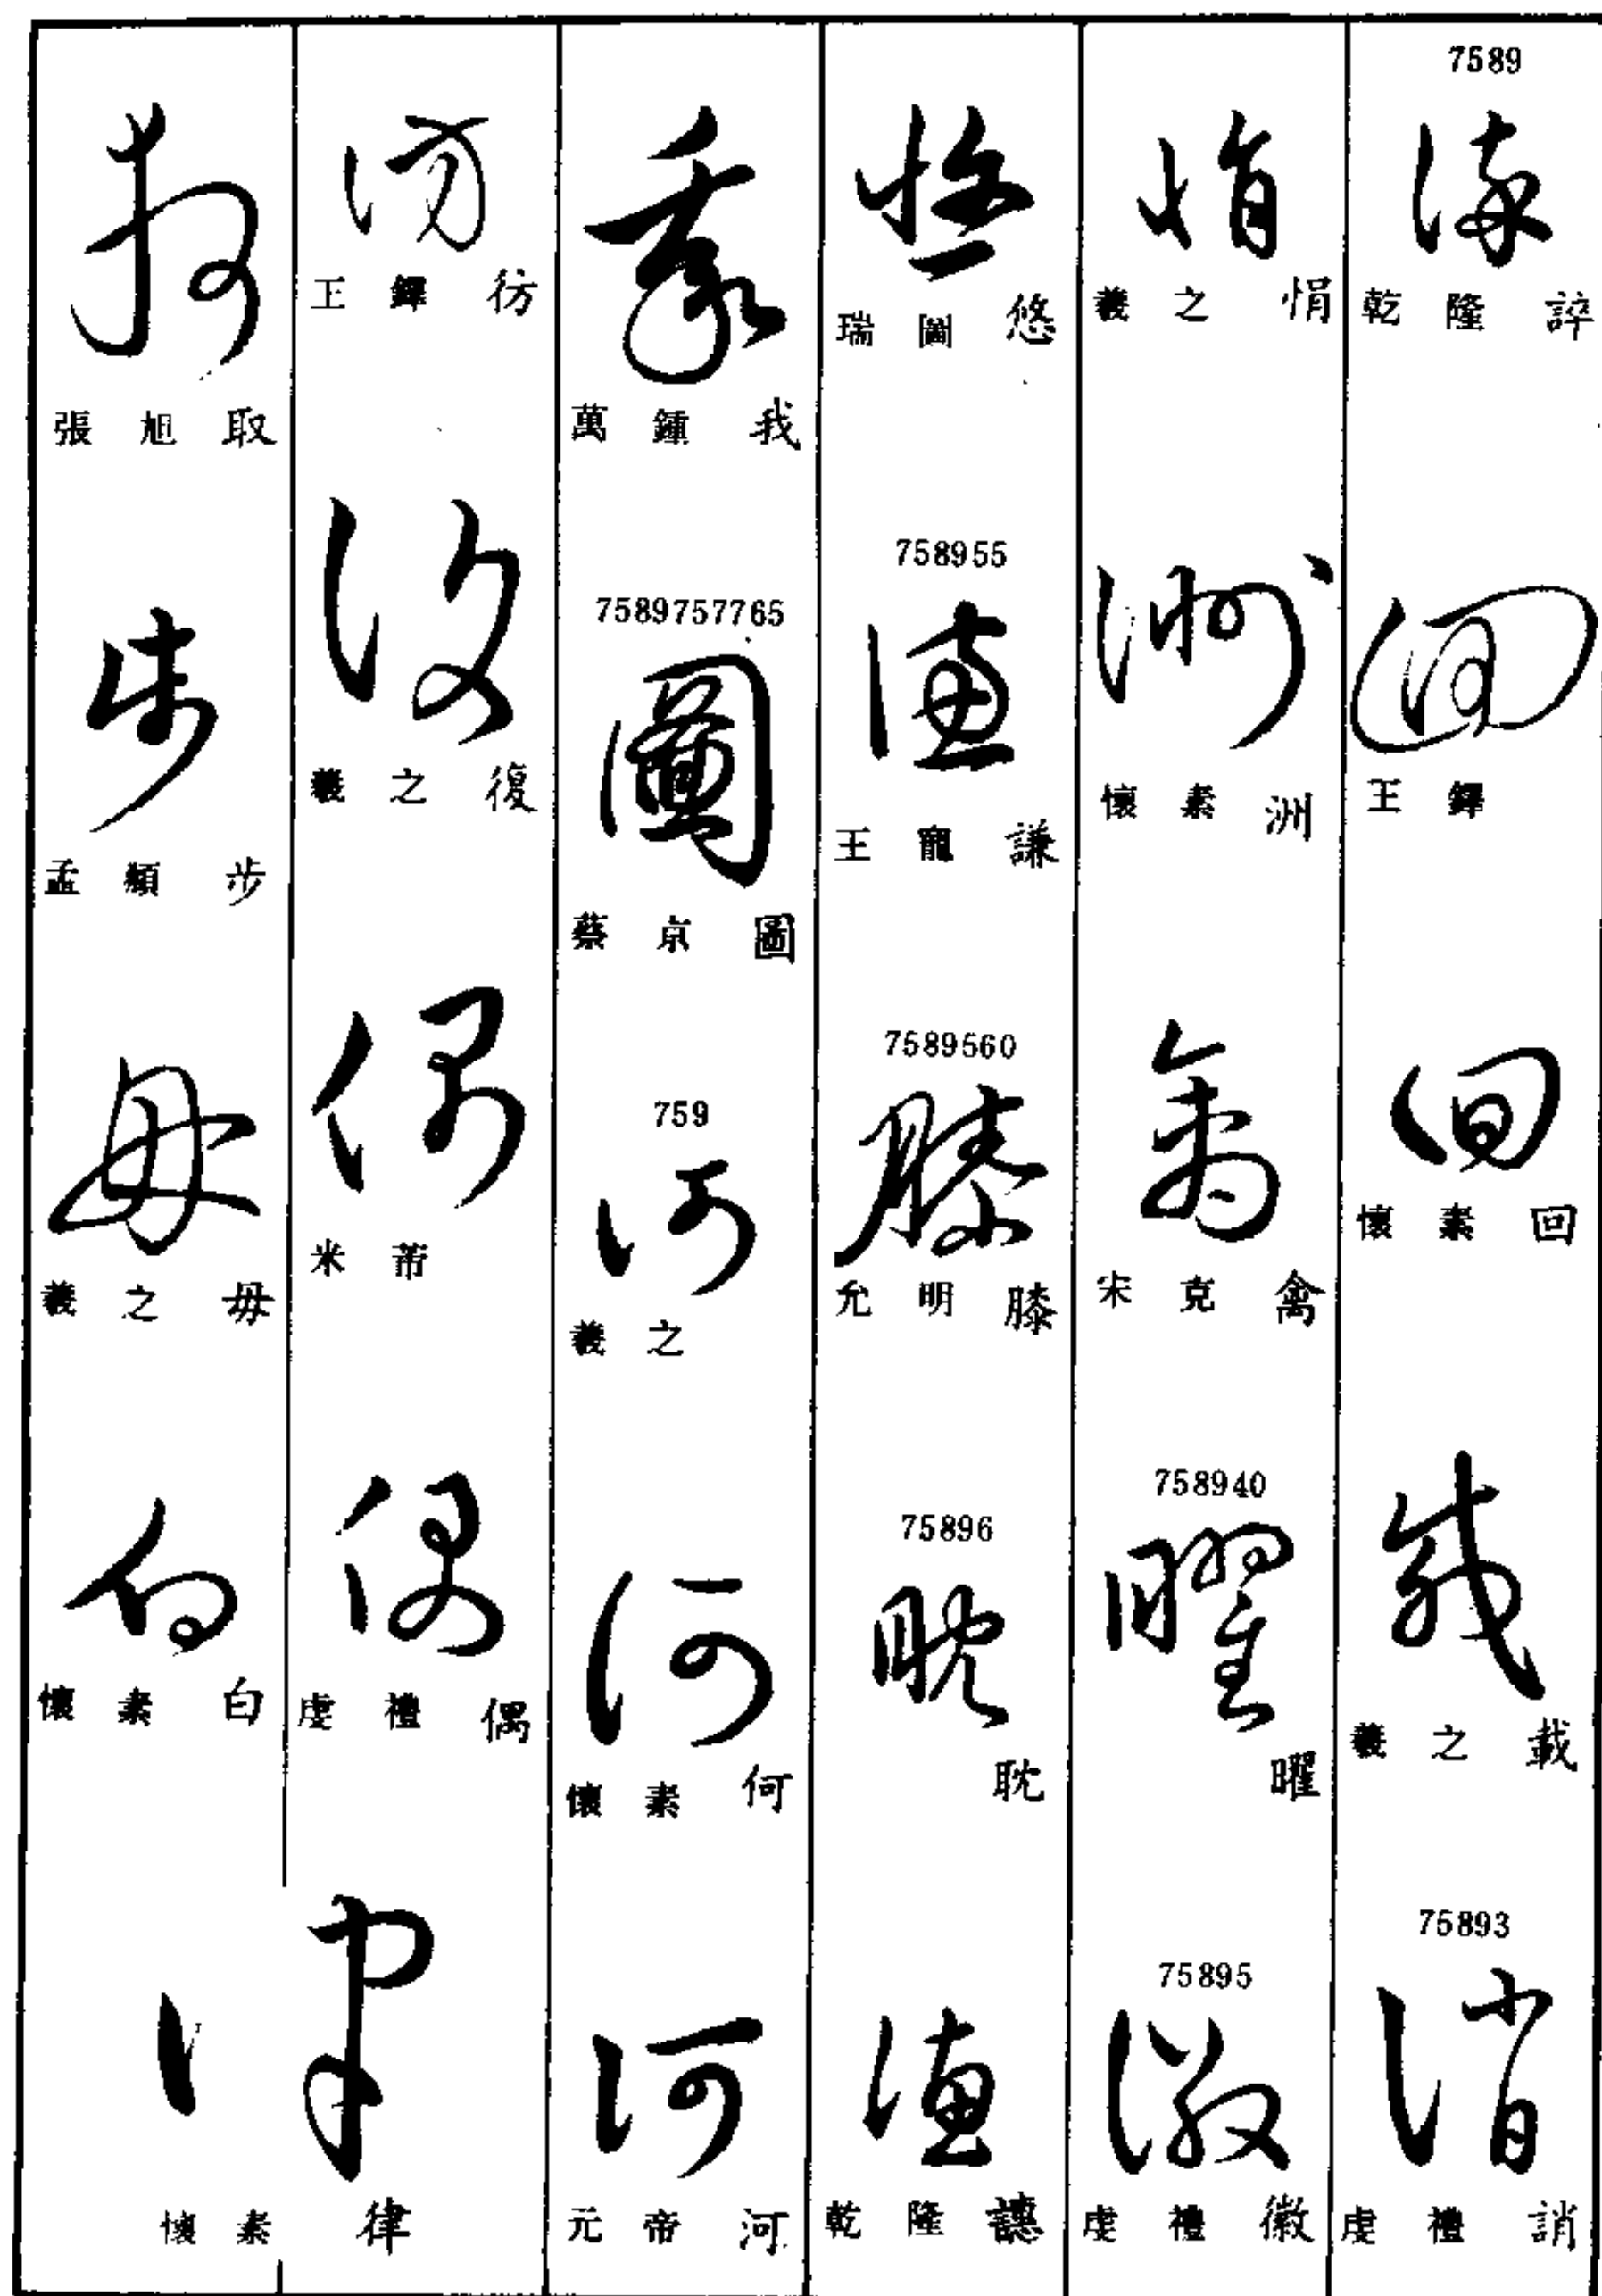 7589
乾隆 誶
王鐸
懷素 回
羲之 載
75893
虔禮 誚
羲之 悁
懷素 洲
宋克 禽
758940
曜
75895
虔禮 徽
瑞圖 悠
758955
王寵 謙
7589560
允明 膝
75896
耽
乾隆
萬鍾 我
7589757765
蔡京 圖
759
羲之
懷素 何
元帝 河
王鐸 彷
羲之 復
米芾
虔禮 偶
懷素 律
張旭 取
孟頫 步
羲之 毋
懷素 白